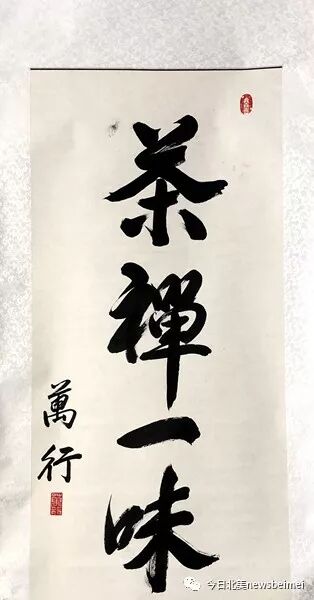 茶禪一味
萬行
今日北美newsbeimei